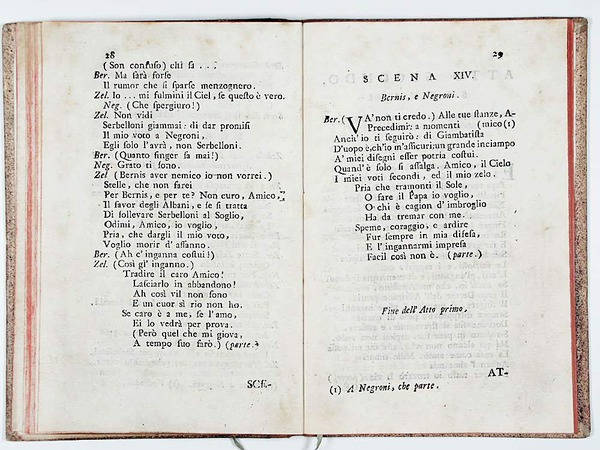 28
(Son confuso) chi sa . . .
Ber. Ma sarà forse
Il rumor che si sparse menzognero.
Zel. Io ... mi fulmini il Ciel, se questo è vero.
Neg. (Che spergiuro!)
Zel. Non vidi
Serbelloni giammai: di dar promisi
Il mio voto a Negroni,
Egli solo l'avrà, non Serbelloni.
Ber. (Quanto finger sa mai!)
Neg. Grato ti sono.
Zel. (Bernis aver nemico io non vorrei.)
Stelle, che non farei
Per Bernis, e per te? Non curo, Amico,
Il favor degli Albani, e se si tratta
Di sollevare Serbelloni al Soglio,
Odimi, Amico, io voglio,
Pria, che dargli il mio voto,
Voglio morir d' affanno.
Ber. (Ah c' inganna costui!)
Zel. (Così gl' inganno.)
Tradire il caro Amico!
Lasciarlo in abbandono!
Ah così vil non sono
E un cuor sì rio non ho.
Se caro è a me, se l'amo,
Ei lo vedrà per prova.
(Però quel che mi giova,
A tempo suo farò.) (parte.
SCE-
29
SCENA XIV.
Bernis, e Negroni.
Ber. (VA' non ti credo.) Alle tue stanze, A-
Precedimi: a momenti (mico(1)
Anch' io ti seguirò: di Giambatista
D'uopo è,ch'io m'assicuri;un grande inciampo
A' miei disegni esser potria costui.
Quand'è solo si assalga. Amico, il Cielo
I miei voti secondi, ed il mio zelo.
Pria che tramonti il Sole,
O fare il Papa io voglio,
O chi è cagion d' imbroglio
Ha da tremar con me.
Speme, coraggio, e ardire
Fur sempre in mia difesa,
E l' ingannarmi impresa
Facil così non è. (parte.)
Fine dell' Atto primo.
AT-
(1) A Negroni, che parte.